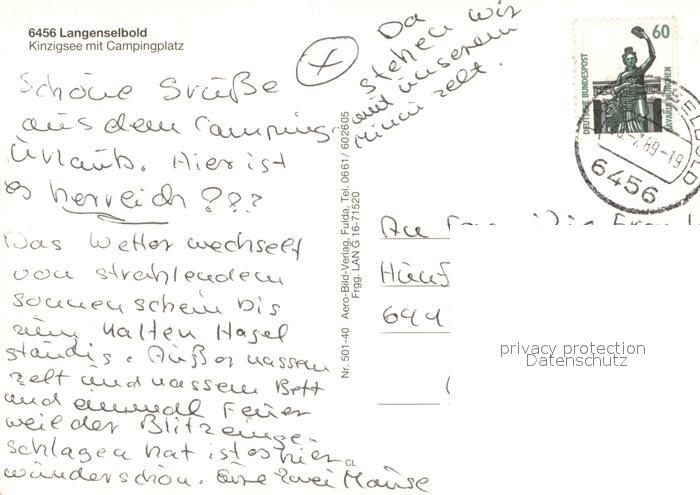 6456 Langenselbold
Kinzigsee mit Campingplatz
Schöne Grüße
aus dem Camping-
urlaub. Hier ist
es herreich ???
Das Wetter wechselt
von strahlendem
Sonnenschein bis
zum kalten Hagel
ständig. Außer nassem
Zelt und nassem Bett
und einmal Feuer
weil der Blitz einge-
schlagen hat ist es hier
wunderschön. Eure zwei Mäuse
CL
Da
stehen wir
mit unserem
Minizelt.
Nr. 501-40 Aero-Bild-Verlag, Fulda, Tel. 0661/602605
Frgg. LAN G 16-71520
60
DEUTSCHE BUNDESPOST
BAVARIA MÜNCHEN
89-19
6456
An
Hünf
privacy protection
Datenschutz